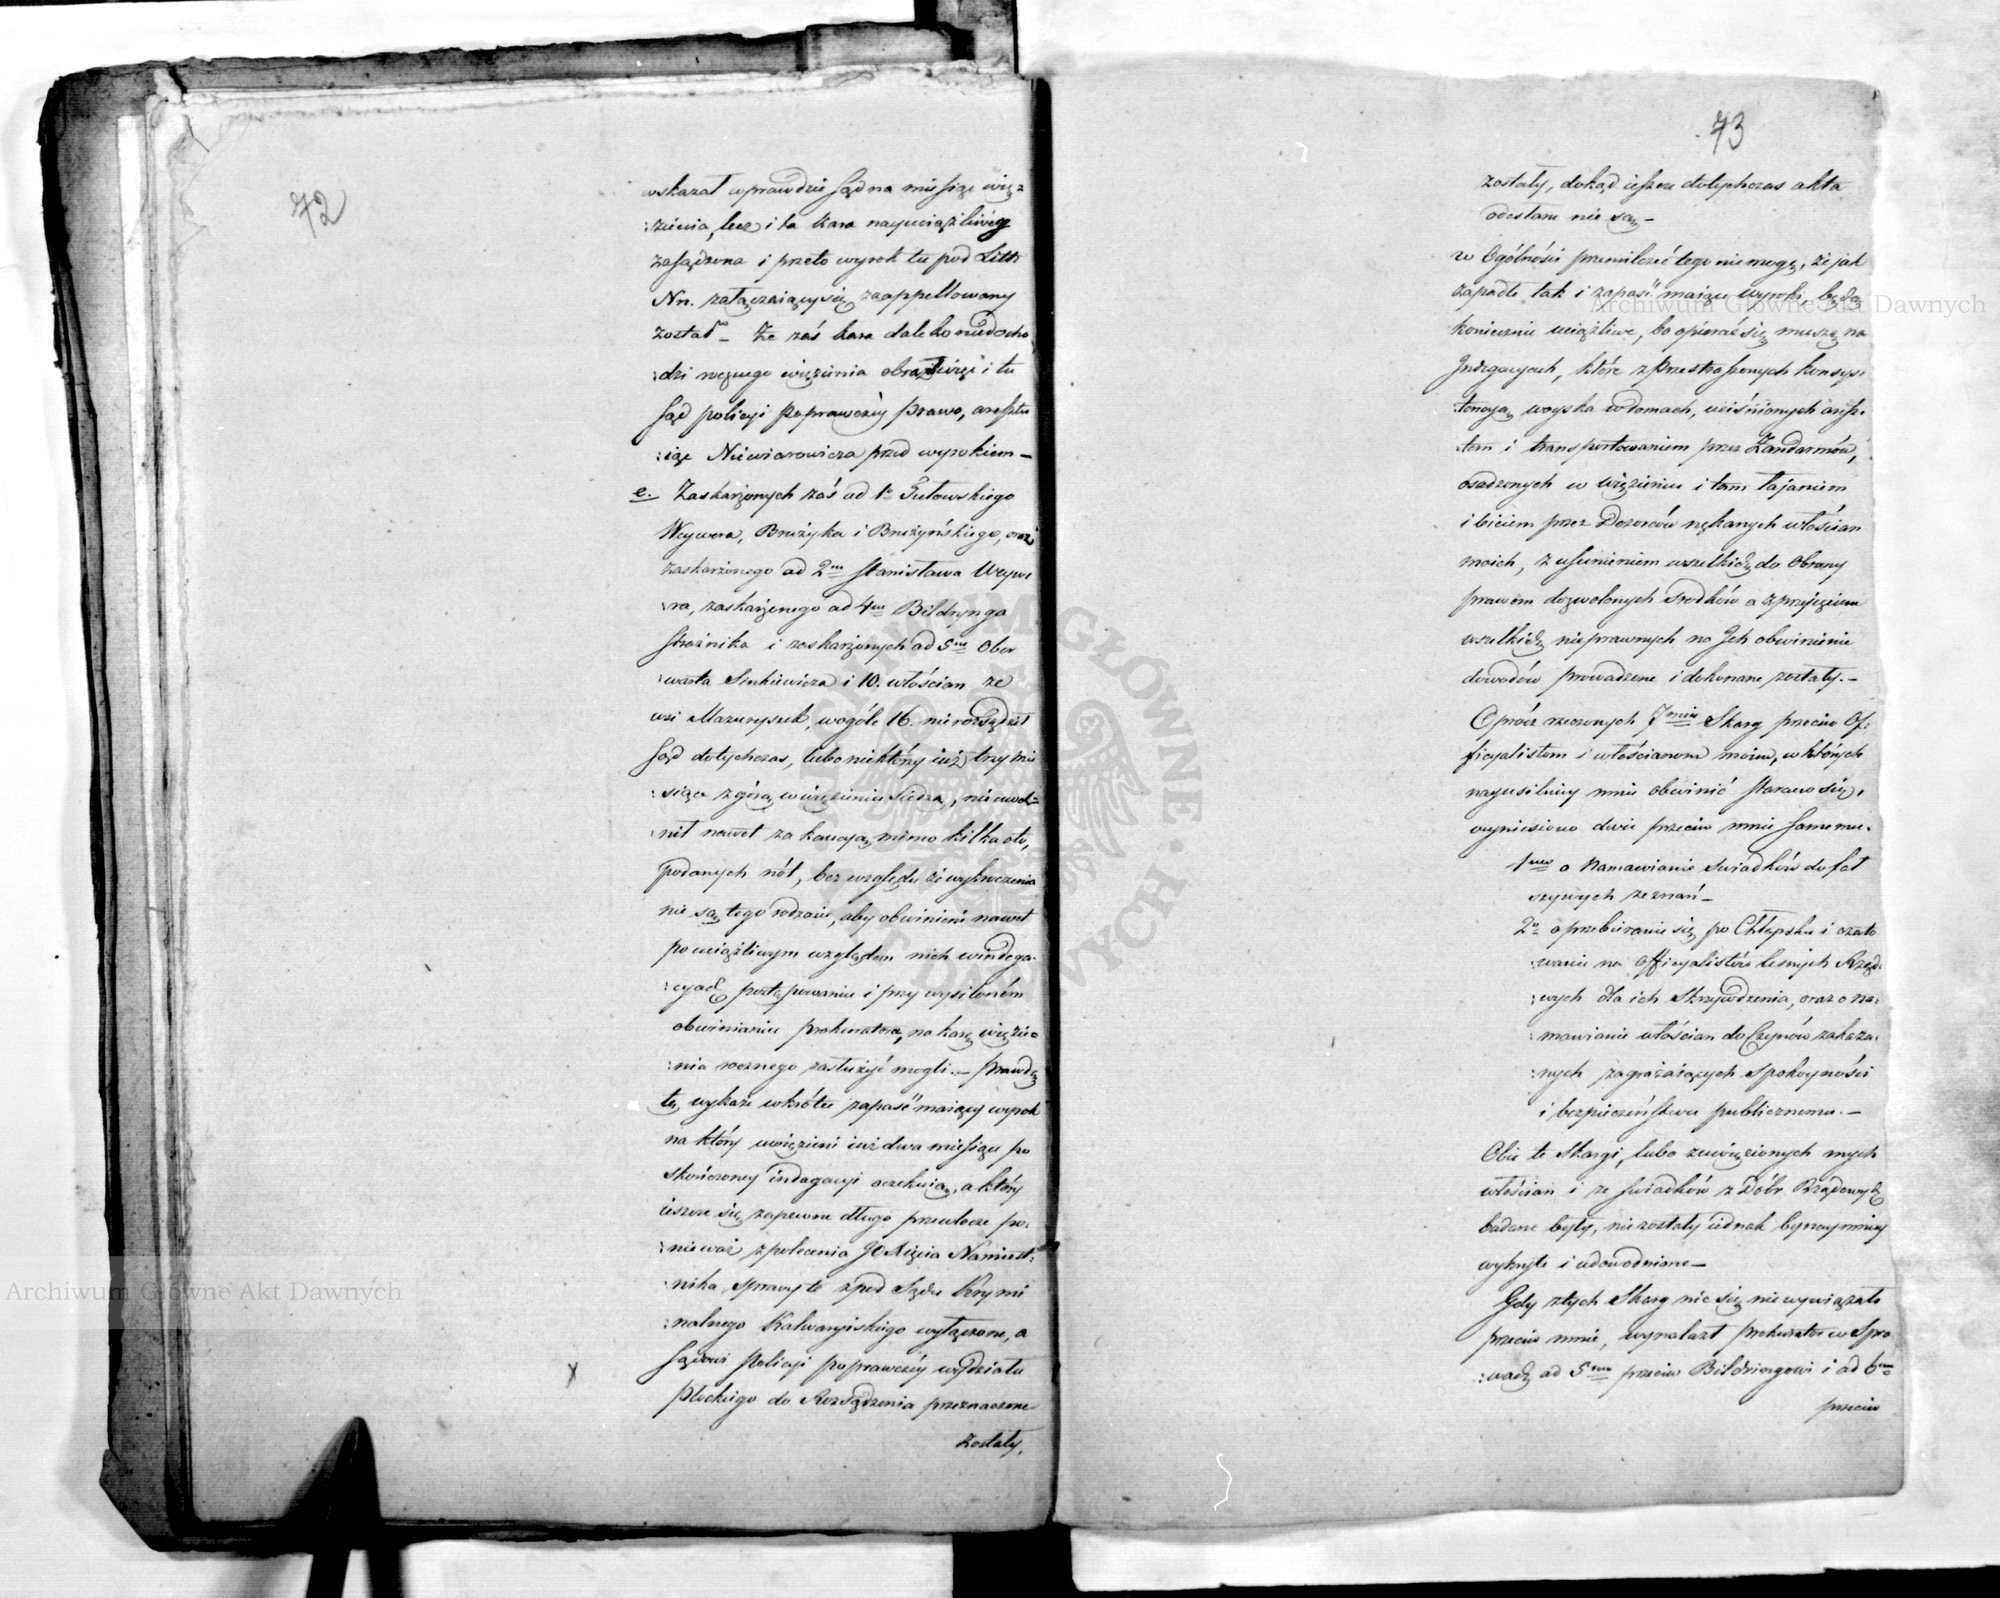 72
wskazał wprawdzie Sąd na miesiąc wię=
:zienia, lecz i ta kara nayuciążliwiey
zasądzona i przeto wyrok tu pod Littr
Nn. załączaiący się zaappellowany
został – Że zaś kara daleko niedocho
:dzi rocznego więzienia obraził więc i tu
Sąd policyi poprawczéy prawo, areszto
:iąc Niewiarowicza przed wyrokiem –
e. Zaskarżonych zaś ad 1o Gutowskiego
Weywera, Brużyka i Brużyńskiego, oraz
zaskarżonego ad 2m Stanisława Weywe
:ra, zaskarżonego ad 4m Bildzynga
Strażnika i zaskarżonych ad 5m Ober
:warta Sinkiewicza i 10. włościan ze
wsi Mazuryszek, wogóle 16. nierozsądził
Sąd dotychczas, lubo niektórzy iuż trzy mie
:siące z górą w więzieniu siedzą, nie uwol=
:nił nawet za kaucyą, mimo kilka oto,
podanych nót, bez względu że wykroczenia
nie są tego rodzaiu, aby obwinieni nawet
po uciążliwym względem nich w indega-
:cyach postępowaniu i przy wysiloném
obwinianiu prokuratora, na karę więzie=
:nia rocznego zasłużyć mogli. – Prawdę
tę, wykaże wkrótce zapaść maiący wyrok
na który uwięzieni iuż dwa miesiące po
skończoney indagacyi oczekuią, a który
ieszcze się zapewne długo przewlecze po:
:nieważ z polecenia JO Xięcia Namiest:
:nika, sprawy te z pod Sądu Krymi
:nalnego Kalwaryiskiego wyłączone, a
Sądowi Policyi poprawczéy wydziału
Płockiego do Rozsądzenia przeznaczone
zostały,
73
zostały, dokąd ieszcze dotychczas akta
odesłane nie są –
w Ogólności przemilczeć tego nie mogę, że jak
zapadłe tak i zapaść maiące Wyroki, będą
koniecznie uciążliwe, bo opierać się muszą na
Indegacyach, które z Przestraszonych konsys:
:tencyą woyska w domach, uciśnionych aresz:
:tem i transportowaniem przez Żandarmów,
osadzonych w więzieniu i tam łajaniem
i biciem przez Dozorców nękanych włościan
moich, z usunieniem wszelkich do Obrony
prawem dozwolonych środków a z przyięciem
wszelkich nieprawnych na Ich obwinienie
dowodów prowadzone i dokonane zostały. –
Oprócz rzeczonych 7miu Skarg przeciw Of:
:ficyalistom i włościanom moim, w których
nayusilniey mnie obwinić starano się,
wyniesiono dwie przeciw mnie samemu.
1mo o Namawianie świadków do fał
szywych zeznań –
2o o przebieranie się po Chłopsku i czato
:wanie na Officyalistów leśnych Rządo
:wych dla ich Skrzywdzenia, oraz o na:
:mawianie włościan do Czynów zakaza:
:nych zagrażaiących Spokoyności
i bezpieczeństwu publicznemu. –
Obie te Skargi, lubo z uwięzionych mych
włościan i ze świadków z Dóbr Rządowych
badane były, nie zostały iednak bynaymniey
wykryte i udowodnione –
Gdy z tych Skarg nic się nie wywiązało
przeciw mnie, wynalazł Prokurator w Spra
:wach ad 5mm przeciw Bildzingowi i ad 6mm
przeciw
Archiwum Główne Akt Dawnych
Archiwum Główne Akt Dawnych